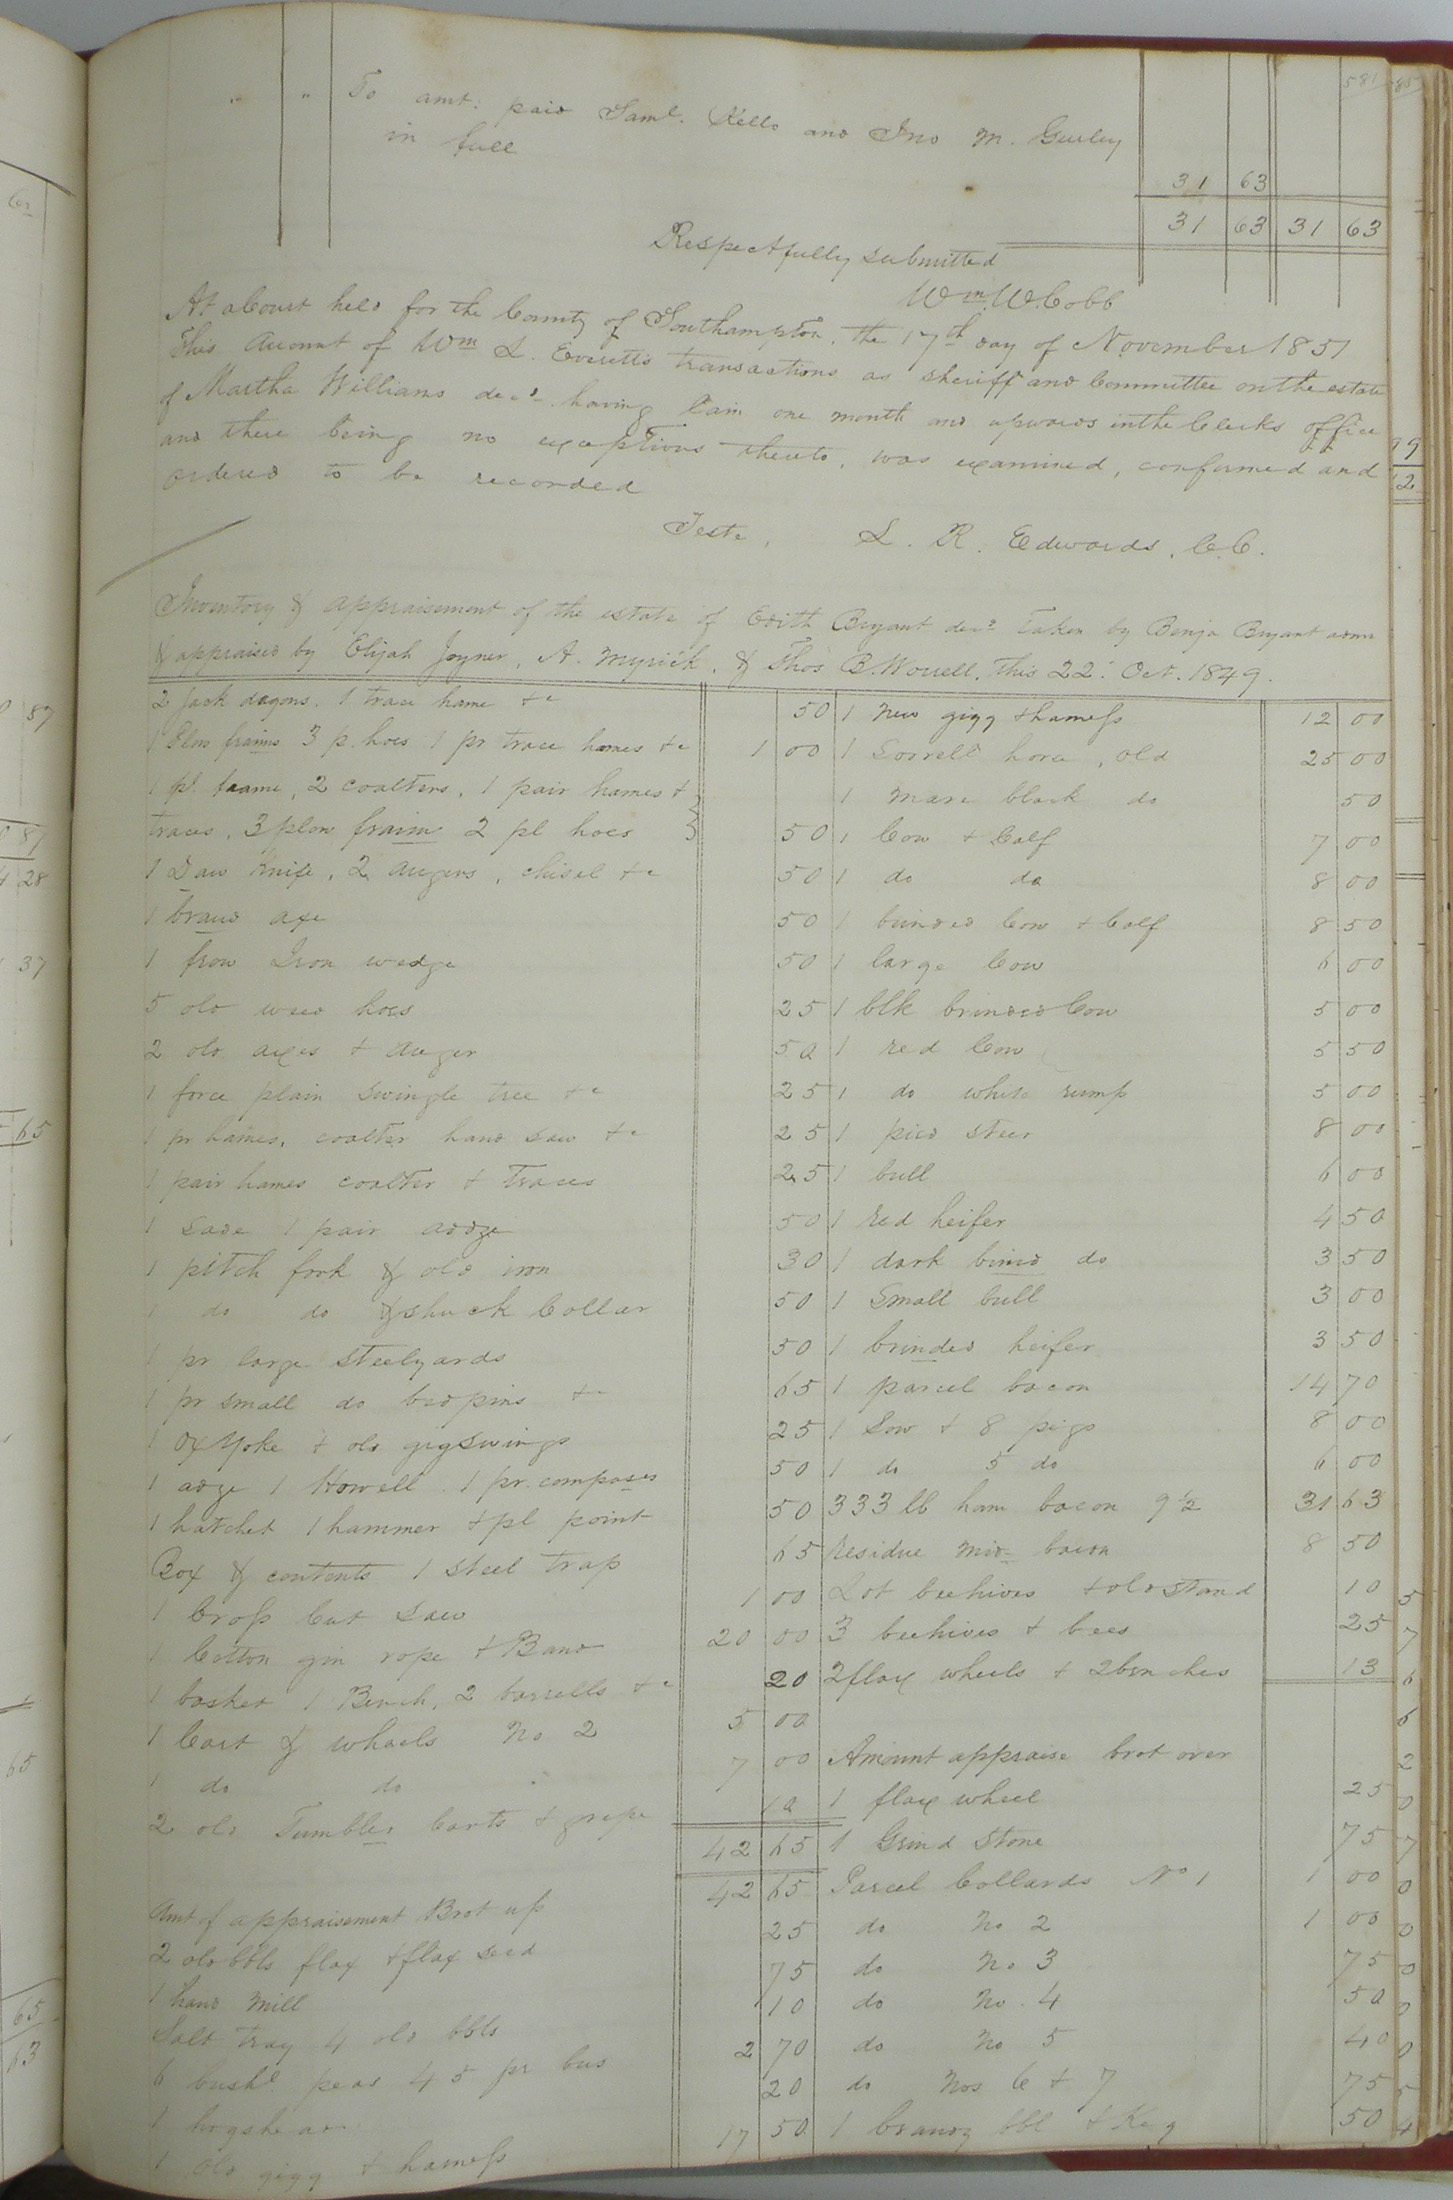 581
" " To amt: paid Saml. Kello and Jno M. Gurley
in full
31 63
31 63 31 63
Respectfully submitted
Wm. W. Cobb
At a Court held for the County of Southampton, the 17th day of November 1851
This Account of Wm L. Everett's transactions as sheriff and Committee on the estate
of Martha Williams decd. having lain one month and upwards in the Clerks office
and there being no exceptions thereto, was examined, confirmed and
ordered to be recorded
Teste, L. R. Edwards, C.C.
Inventory & appraisement of the estate of Edith Bryant decd. Taken by Benja Bryant admr
& appraised by Elijah Joyner, A. Myrick, & Thos B. Worrell, this 22d Oct. 1849.
2 Jack dagons, 1 trace hame &c 50
1 Plow fraims 3 p. hoes 1 pr trace hames &c 1 00
1 pl. fraame, 2 coalters, 1 pair hames &
traces, 3 plow fraim 2 pl hoes 50
1 Daw Knife, 2 augers, chisel &c 50
1 braud axe 50
1 frow Iron wedge 50
5 old weed hoes 25
2 old axes & auger 50
1 force plain swingle tree &c 25
1 pr hames, coalter hand saw &c 25
1 pair hames coalter & traces 25
1 sade 1 pair adoze 50
1 pitch fork & old iron 30
1 do do & shuck Collar 50
1 pr large steelyards 50
1 pr small do bed pins &c 65
1 ox Yoke & old gig swings 25
1 adze 1 Howell 1 pr. compases 50
1 hatchet 1 hammer & pl point 50
Box & contents 1 steel trap 65
1 Cross Cut saw 1 00
1 Cotton gin rope & Band 20 00
1 basket 1 Bench, 2 barrells &c 20
1 Cart & wheels No 2 5 00
1 do do 7 00
2 old Tumbler Carts & 10
42 65
Amt of appraisement Brot up 42 65
2 old bbls flax & flax seed 25
1 hand mill 75
Salt tray 4 old bbls 10
6 bushl peas 45 pr bus 2 70
1 hogshead 20
1 old gigg & harness 17 50
1 new gigg & harness 12 00
1 Sorrell horse, old 25 00
1 mare black do 50
1 Cow & Calf 7 00
1 do do 8 00
1 brinded Cow & Calf 8 50
1 large Cow 6 00
1 blk brinded Cow 5 00
1 red Cow 5 50
1 do white rump 5 00
1 pied steer 8 00
1 bull 6 00
1 red heifer 4 50
1 dark bined do 3 50
1 Small bull 3 00
1 brinded heifer 3 50
1 parcel bacon 14 70
1 Sow & 8 pigs 8 00
1 do 5 do 6 00
333 lb ham bacon 9 1/2 31 63
Residue mid- bacon 8 50
Lot beehives & old stand 10
3 beehives & bees 25
2 flax wheels & 2 benches 13
Amount appraise brot over
1 flax wheel 25
1 Grind Stone 75
Parcel Collards No 1 1 00
do No 2 1 00
do No 3 75
do No. 4 50
do No 5 40
do Nos 6 & 7 75
1 brandy bbl & Keg 50